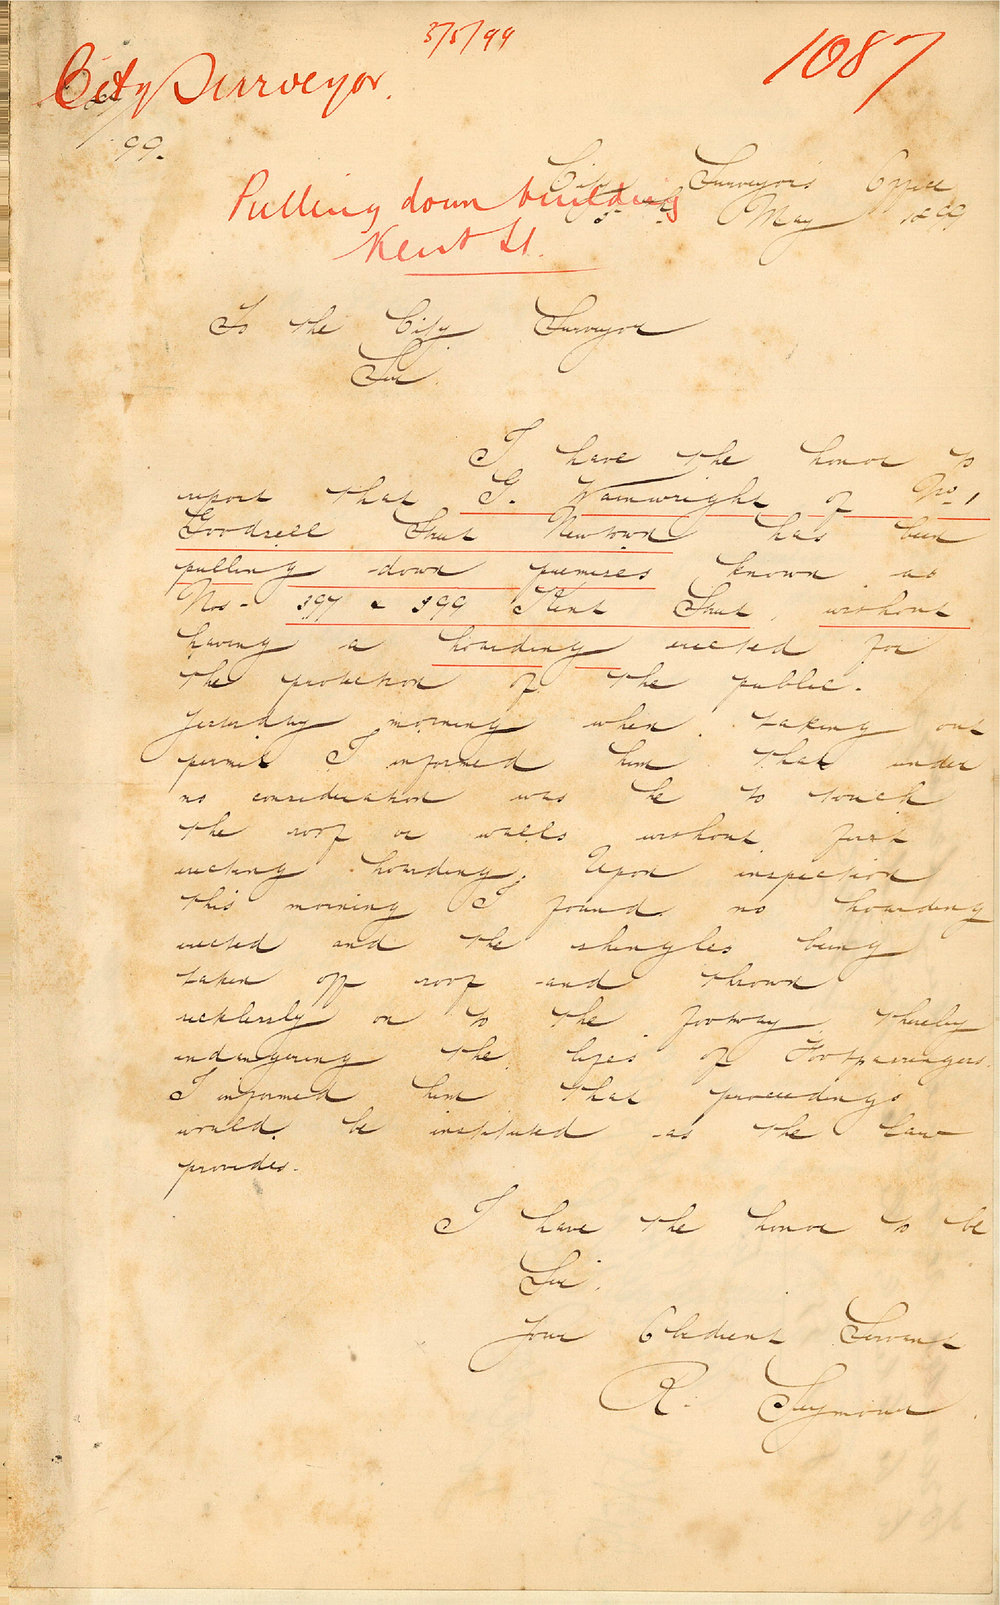 3/5/99
City Surveyor.
1087
99.
City Surveyor's Office
May 1899
Pulling down building
Kent St.
To the City Surveyor
Sir
I have the honor to
report that G. Wainwright of No. 1
Goodsell Street Newtown has been
pulling down premises known as
Nos. 397 & 399 Kent Street, without
having a hoarding erected for
the protection of the public.
Yesterday morning when taking out
permit I informed him that under
no consideration was he to touch
the roof or walls without first
erecting hoarding. Upon inspection
this morning I found no hoarding
erected and the shingles being
taken off roof and thrown
recklessly on to the footway thereby
endangering the lifes of Footpassengers.
I informed him that proceedings
would be instituted as the law
provides.
I have the honor to be
Sir,
Your Obedient Servant
R. Seymour